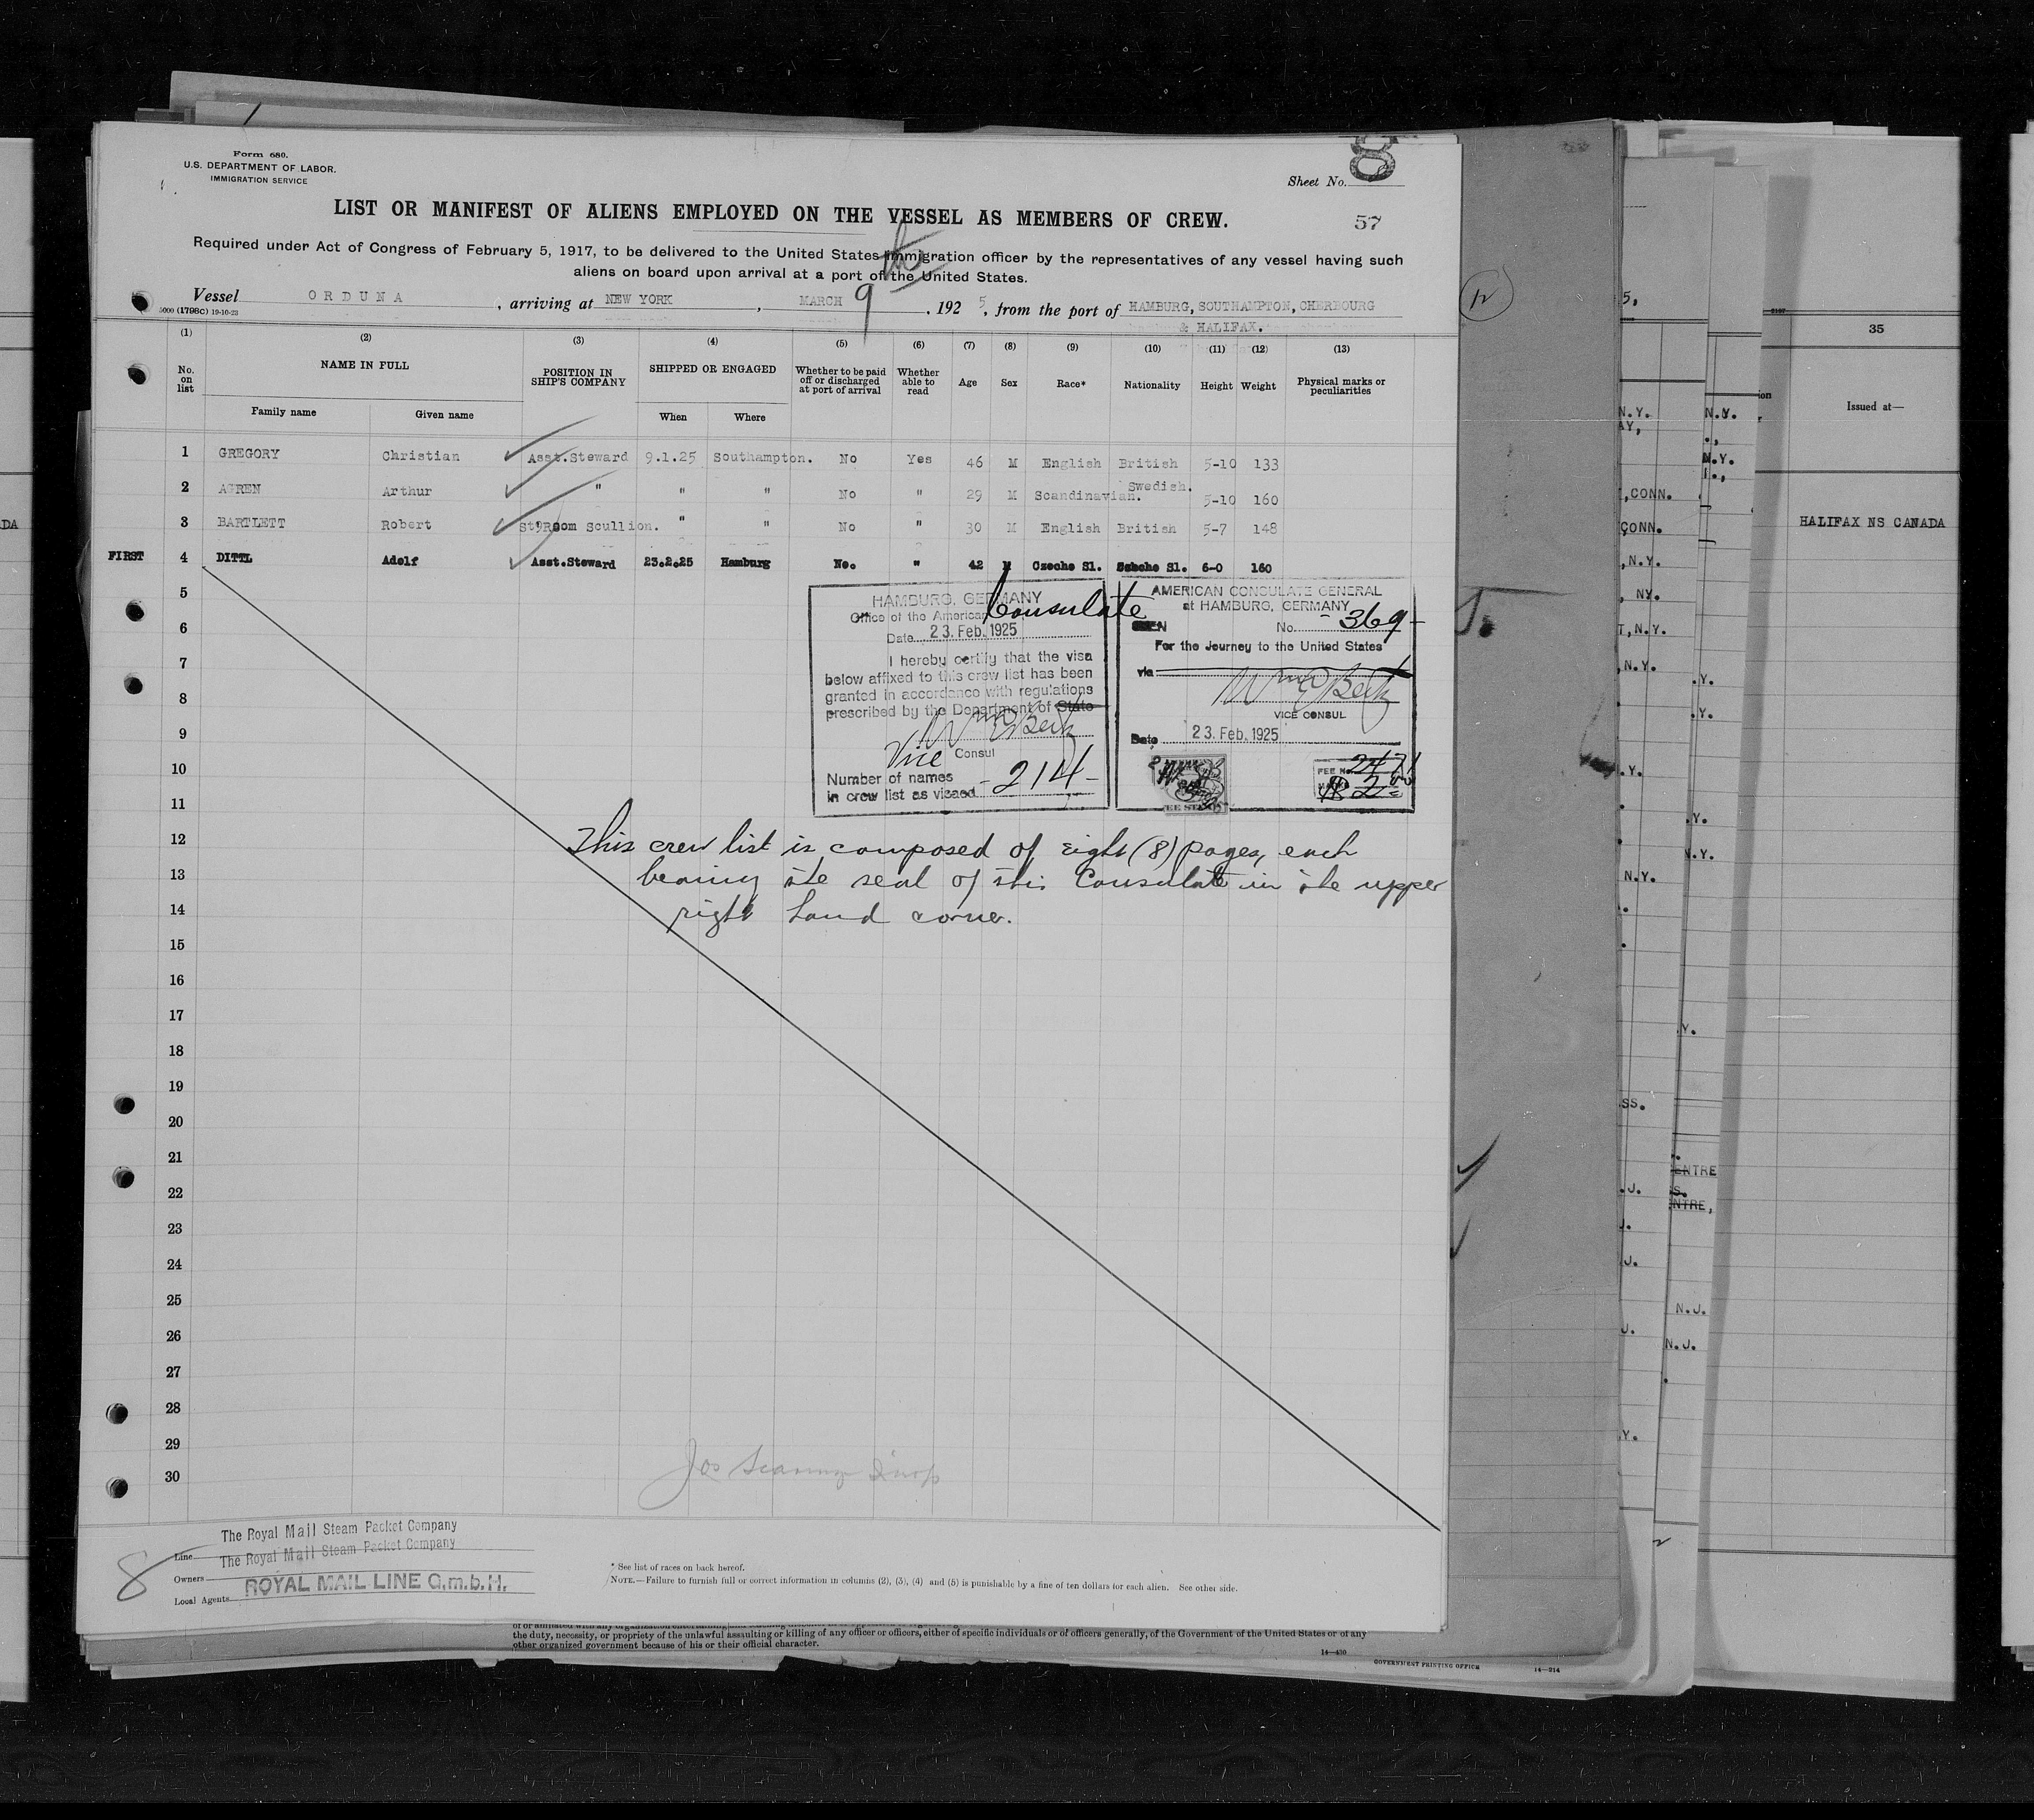 Form 680.
U.S. DEPARTMENT OF LABOR.
IMMIGRATION SERVICE
Sheet No. 8
57
LIST OR MANIFEST OF ALIENS EMPLOYED ON THE VESSEL AS MEMBERS OF CREW.
Required under Act of Congress of February 5, 1917, to be delivered to the United States Immigration officer by the representatives of any vessel having such
aliens on board upon arrival at a port of the United States.
Vessel ORDUNA, arriving at NEW YORK, MARCH 9, 1925, from the port of HAMBURG, SOUTHAMPTON, CHERBOURG
& HALIFAX.
5000 (1798c) 19-10-23
(1) (2) (3) (4) (5) (6) (7) (8) (9) (10) (11) (12) (13)
No. on list NAME IN FULL POSITION IN SHIP'S COMPANY SHIPPED OR ENGAGED Whether to be paid off or discharged at port of arrival Whether able to read Age Sex Race* Nationality Height Weight Physical marks or peculiarities
Family name Given name When Where
1 GREGORY Christian Asst.Steward 9.1.25 Southampton. No Yes 46 M English British 5-10 133
2 AGREN Arthur " " " No " 29 M Scandinavian. Swedish. 5-10 160
3 BARTLETT Robert Room Scullion. " " No " 30 M English British 5-7 148
FIRST 4 DITTL Adolf Asst.Steward 23.2.25 Hamburg No. " 42 M Czecho Sl. Sl. 6-0 160
5
6
7
8
9
10
11
12
13
14
15
16
17
18
19
20
21
22
23
24
25
26
27
28
29
30
HAMBURG, GERMANY
Office of the American Consulate
Date 23. Feb. 1925
I hereby certify that the visa
below affixed to this crew list has been
granted in accordance with regulations
prescribed by the Department of State
Vice Consul
Number of names
in crew list as visaed -214-
AMERICAN CONSULATE GENERAL
at HAMBURG, GERMANY
No. -369-
For the Journey to the United States
via
VICE CONSUL
Date 23. Feb. 1925
This crew list is composed of eight (8) pages, each
bearing the seal of this Consulate in the upper
right hand corner.
The Royal Mail Steam Packet Company
Line The Royal Mail Steam Packet Company
Owners
Local Agents ROYAL MAIL LINE G.m.b.H.
8
* See list of races on back hereof.
NOTE.—Failure to furnish full or correct information in columns (2), (3), (4) and (5) is punishable by a fine of ten dollars for each alien. See other side.
the duty, necessity, or propriety of the unlawful assaulting or killing of any officer or officers, either of specific individuals or of officers generally, of the Government of the United States or of any
other organized government because of his or their official character.
14—430
GOVERNMENT PRINTING OFFICE
14—314
35
Issued at—
HALIFAX NS CANADA
N.Y.
N.Y.
N.Y.
,CONN.
CONN.
,N.Y.
, NY.
,N.Y.
,N.Y.
N.Y.
ENTRE
N.J.
N.J.